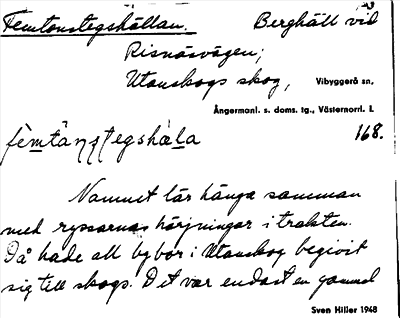 Femtonstegshällan. Berghäll vid
Risnäsvägen;
Utanskogs skog, Vibyggerå sn,
Ångermanl. s. doms. tg., Västernorrl. L
168.
Namnet lär hänga samman
med ryssarnas härjningar i trakten.
Då hade all bybor i Utanskog begivit
sig till skogs. Det var endast en gammal
Sven Hiller 1948